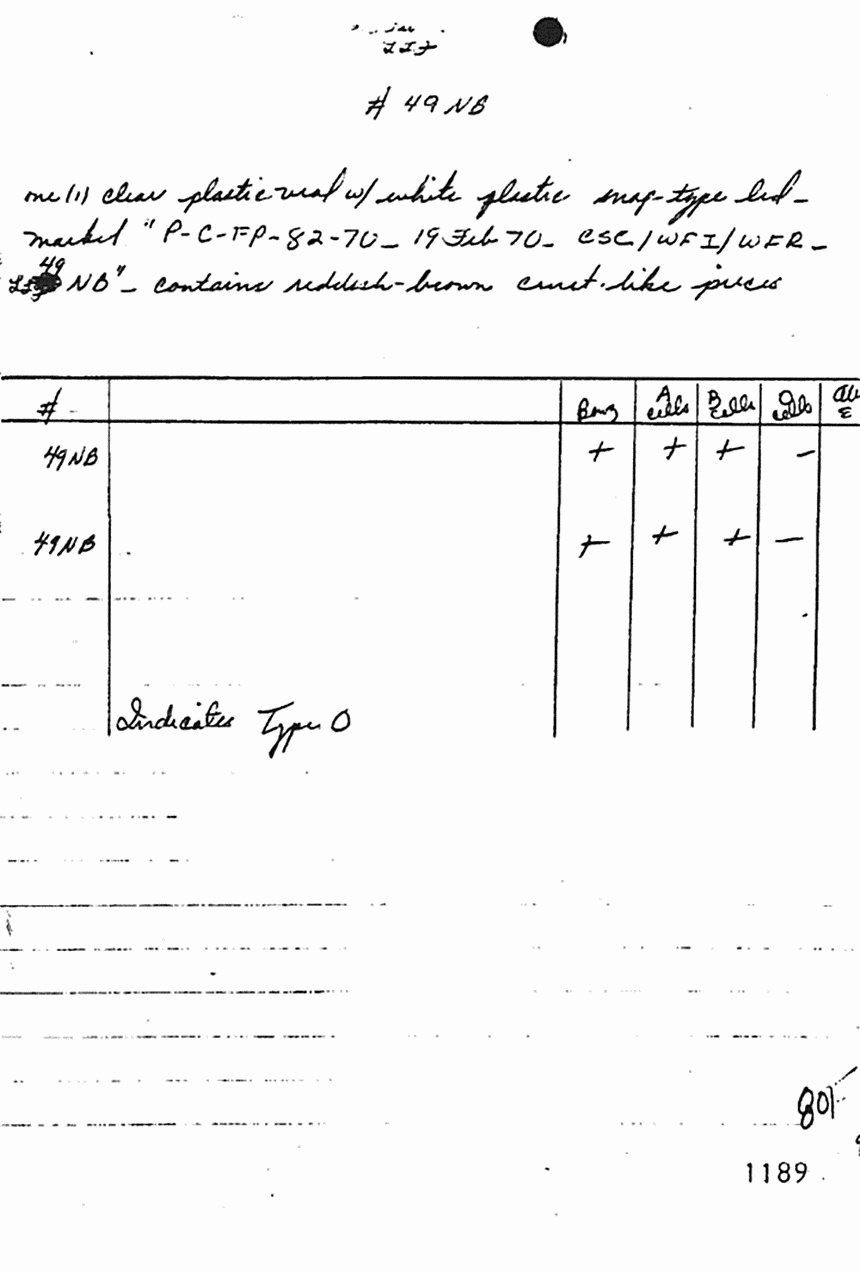 # 49 NB
one (1) clear plastic vial w/ white plastic snap-type lid -
marked "P-C-FP-82-70 - 19 Feb 70 - CSC/WFI/WFR -
49
NB" - contains reddish-brown crust-like pieces
# A cells B cells O cells
49NB + + + -
49NB + + + -
Indicates Type O
801
1189